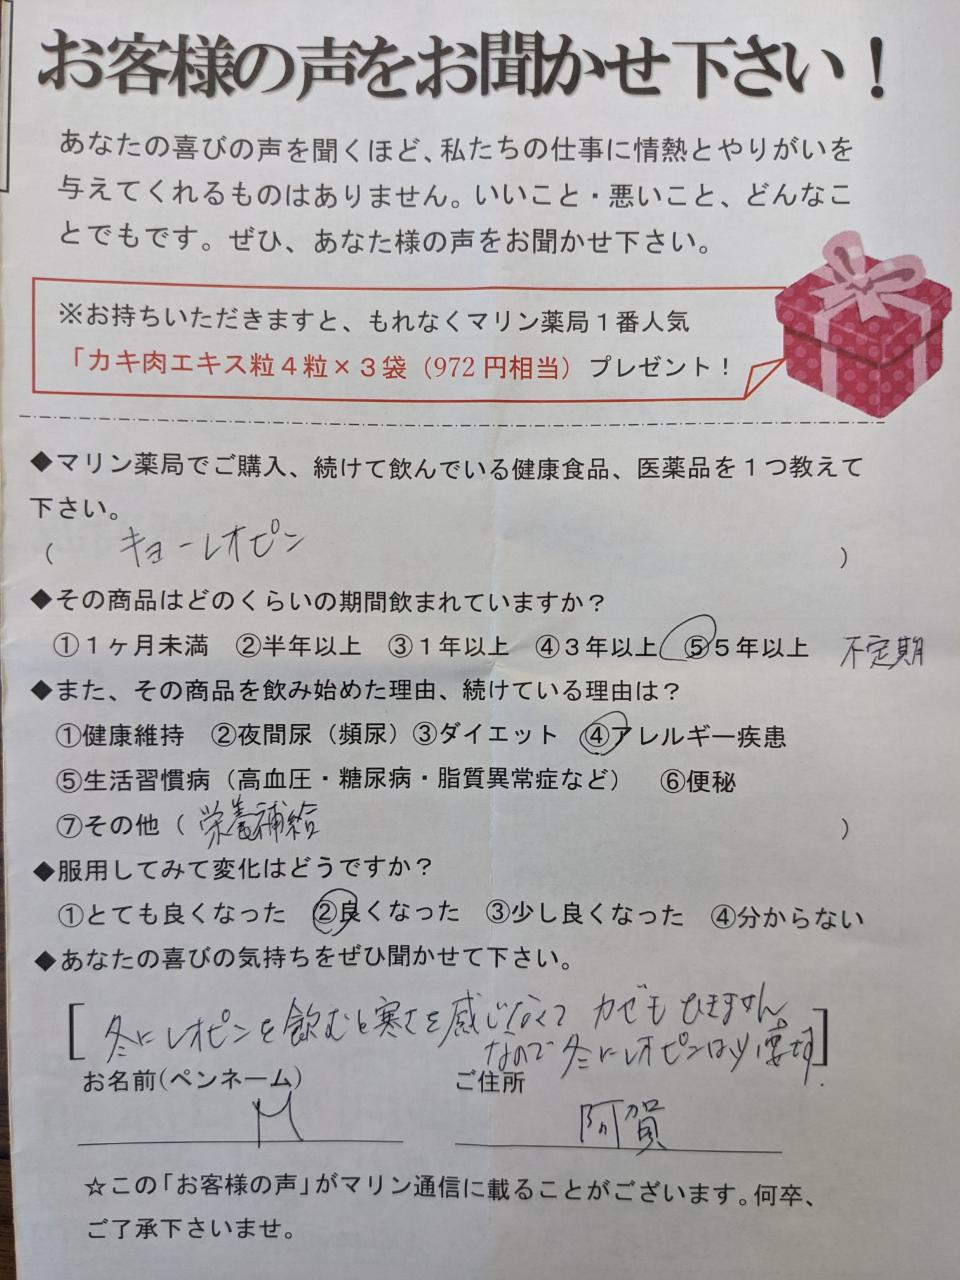 お客様の声をお聞かせ下さい！
あなたの喜びの声を聞くほど、私たちの仕事に情熱とやりがいを
与えてくれるものはありません。いいこと・悪いこと、どんなこ
とでもです。ぜひ、あなた様の声をお聞かせ下さい。
※お持ちいただきますと、もれなくマリン薬局１番人気
「カキ肉エキス粒４粒×３袋（972円相当）プレゼント！
◆マリン薬局でご購入、続けて飲んでいる健康食品、医薬品を１つ教えて
下さい。
（ キヨーレオピン ）
◆その商品はどのくらいの期間飲まれていますか？
①１ヶ月未満 ②半年以上 ③１年以上 ④３年以上 ⑤５年以上 不定期
◆また、その商品を飲み始めた理由、続けている理由は？
①健康維持 ②夜間尿（頻尿）③ダイエット ④アレルギー疾患
⑤生活習慣病（高血圧・糖尿病・脂質異常症など） ⑥便秘
⑦その他（ 栄養補給 ）
◆服用してみて変化はどうですか？
①とても良くなった ②良くなった ③少し良くなった ④分からない
◆あなたの喜びの気持ちをぜひ聞かせて下さい。
[ 冬にレオピンを飲むと寒さを感じなくて カゼもひきません
なので冬にレオピンは必要です. ]
お名前（ペンネーム） ご住所
M 阿賀
☆この「お客様の声」がマリン通信に載ることがございます。何卒、
ご了承下さいませ。